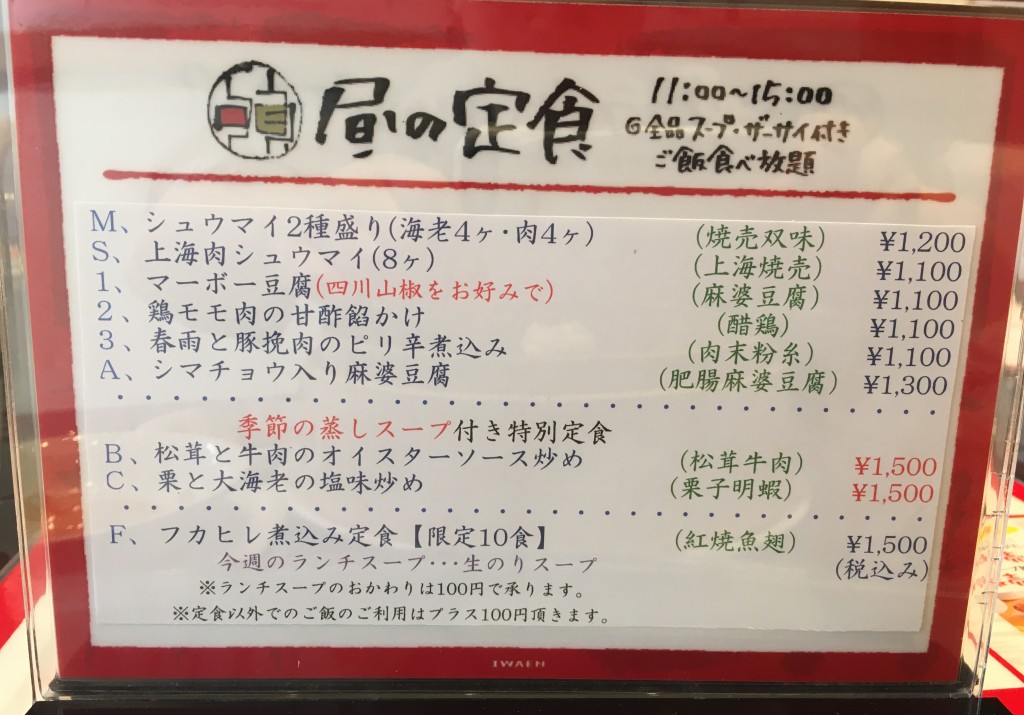 昼の定食
11:00~15:00
全品スープ・ザーサイ付き
ご飯食べ放題
M、シュウマイ2種盛り(海老4ヶ・肉4ヶ) (焼売双味) ¥1,200
S、上海肉シュウマイ(8ヶ) (上海焼売) ¥1,100
1、マーボー豆腐(四川山椒をお好みで) (麻婆豆腐) ¥1,100
2、鶏モモ肉の甘酢餡かけ (醋鶏) ¥1,100
3、春雨と豚挽肉のピリ辛煮込み (肉末粉糸) ¥1,100
A、シマチョウ入り麻婆豆腐 (肥腸麻婆豆腐) ¥1,300
季節の蒸しスープ付き特別定食
B、松茸と牛肉のオイスターソース炒め (松茸牛肉) ¥1,500
C、栗と大海老の塩味炒め (栗子明蝦) ¥1,500
F、フカヒレ煮込み定食【限定10食】 (紅焼魚翅) ¥1,500
今週のランチスープ・・・生のりスープ (税込み)
※ランチスープのおかわりは100円で承ります。
※定食以外でのご飯のご利用はプラス100円頂きます。
IWAEN